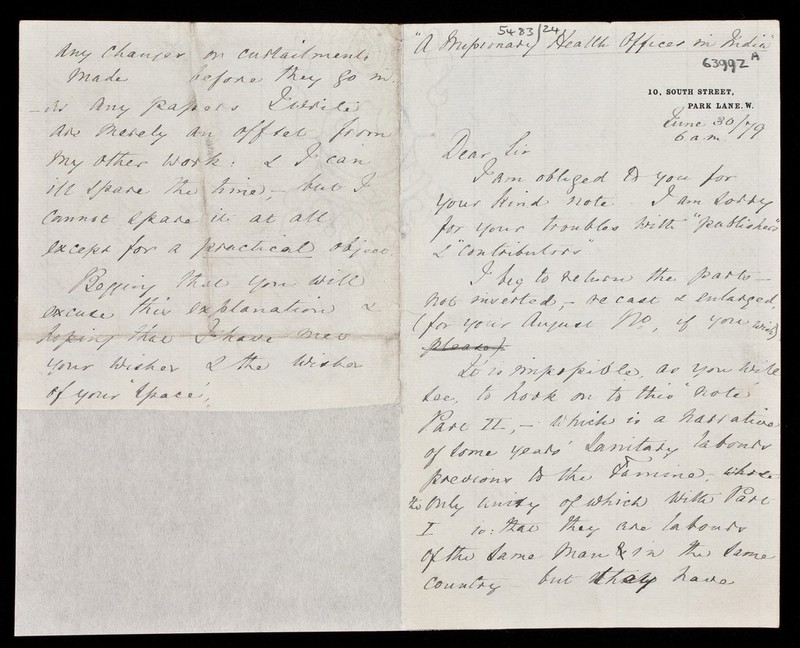 any changes or curtailments
made before they go in.
- As any papers I write
are merely an offset from
my other work: & I can
ill spare the time, - but I
cannot spare it at all
except for a practical object.
Begging that you will
excuse this explanation &
hoping that I have met
your wishes & the wishes
of your 'space',
5483/24
"A Missionary Health Officer in India"
63992 A
10, SOUTH STREET,
PARK LANE. W.
June 30/79
6 a.m.
Dear Sir
I am obliged to you for
your kind note. I am sorry
for your troubles with "publishers"
& "contributors"
I beg to return the parts -
not inserted, - re cast & enlarged,
(for your August No, if you wish)
please).
It is impossible, as you will
see, to hook on to this 'note'
Part II, - which is a narrative
of some years' sanitary labours
previous to the Famine, - whose
the only unity of which with Part
I is: that they are labours
of the same man & in the same
country but they have